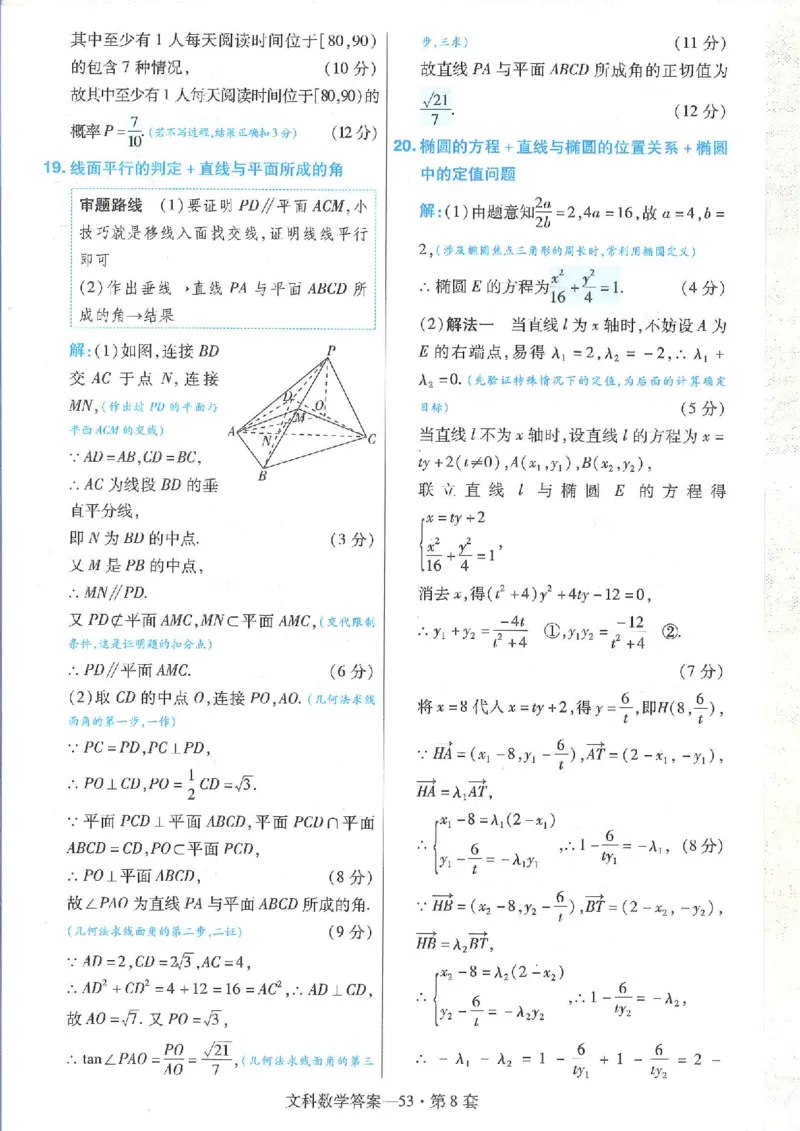 其中至少有1人每天阅读时间位于[80,90)
的包含7种情况, (10分)
故其中至少有1人每天阅读时间位于[80,90)的
概率P=7/10.(若不写过程,结果正确扣3分) (12分)
19.线面平行的判定+直线与平面所成的角
审题路线 (1)要证明PD∥平面ACM,小
技巧就是移线入面找交线,证明线线平行
即可
(2)作出垂线→直线PA与平面ABCD所
成的角→结果
解:(1)如图,连接BD
交AC于点N,连接
MN,(作出过PD的平面与
平面ACM的交线)
∵AD=AB,CD=BC,
∴AC为线段BD的垂
直平分线,
P
D
O
M
A
N
C
B
即N为BD的中点. (3分)
又M是PB的中点,
∴MN∥PD.
又PD⊄平面AMC,MN⊂平面AMC,(交代限制
条件,这是证明题的扣分点)
∴PD∥平面AMC. (6分)
(2)取CD的中点O,连接PO,AO.(几何法求线
面角的第一步,一作)
∵PC=PD,PC⊥PD,
∴PO⊥CD,PO=1/2CD=√3.
∵平面PCD⊥平面ABCD,平面PCD∩平面
ABCD=CD,PO⊂平面PCD,
∴PO⊥平面ABCD, (8分)
故∠PAO为直线PA与平面ABCD所成的角.
(几何法求线面角的第二步,二证) (9分)
∵AD=2,CD=2√3,AC=4,
∴AD²+CD²=4+12=16=AC²,∴AD⊥CD,
故AO=√7.又PO=√3,
∴tan∠PAO=PO/AO=√21/7,(几何法求线面角的第三
步,三求) (11分)
故直线PA与平面ABCD所成角的正切值为
√21/7. (12分)
20.椭圆的方程+直线与椭圆的位置关系+椭圆
中的定值问题
解:(1)由题意知2a/2b=2,4a=16,故a=4,b=
2,(涉及椭圆焦点三角形的周长时,常利用椭圆定义)
∴椭圆E的方程为x²/16+y²/4=1. (4分)
(2)解法一 当直线l为x轴时,不妨设A为
E的右端点,易得λ₁=2,λ₂=-2,∴λ₁+
λ₂=0.(先验证特殊情况下的定值,为后面的计算确定
目标) (5分)
当直线l不为x轴时,设直线l的方程为x=
ty+2(t≠0),A(x₁,y₁),B(x₂,y₂),
联立直线l与椭圆E的方程得
{x=ty+2
x²/16+y²/4=1,
消去x,得(t²+4)y²+4ty-12=0,
∴y₁+y₂=-4t/(t²+4) ①,y₁y₂=-12/(t²+4) ②.
(7分)
将x=8代入x=ty+2,得y=6/t,即H(8,6/t),
∵HA→=(x₁-8,y₁-6/t),AT→=(2-x₁,-y₁),
HA→=λ₁AT→,
∴{x₁-8=λ₁(2-x₁)
y₁-6/t=-λ₁y₁,∴1-6/(ty₁)=-λ₁, (8分)
∵HB→=(x₂-8,y₂-6/t),BT→=(2-x₂,-y₂),
HB→=λ₂BT→,
∴{x₂-8=λ₂(2-x₂)
y₂-6/t=-λ₂y₂,∴1-6/(ty₂)=-λ₂,
∴-λ₁-λ₂=1-6/(ty₁)+1-6/(ty₂)=2-
文科数学答案—53·第8套